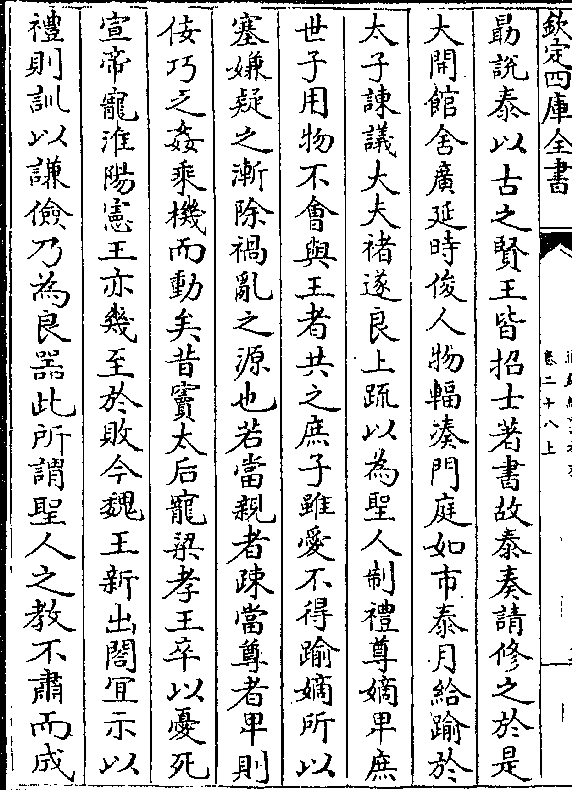 欽定四庫全書
卷二十八上
勗說泰以古之賢王皆招士著書故泰奏請修之於是
大開館舍廣延時俊人物輻湊門庭如市泰月給踰於
太子諫議大夫褚遂良上疏以為聖人制禮尊嫡卑庶
世子用物不會與王者共之庶子雖愛不得踰嫡所以
塞嫌疑之漸除禍亂之源也若當親者疎當尊者卑則
佞巧之姦乘機而動矣昔竇太后寵梁孝王卒以憂死
宣帝寵淮陽憲王亦幾至於敗今魏王新出閤宜示以
禮則訓以謙儉乃為良器此所謂聖人之教不肅而成